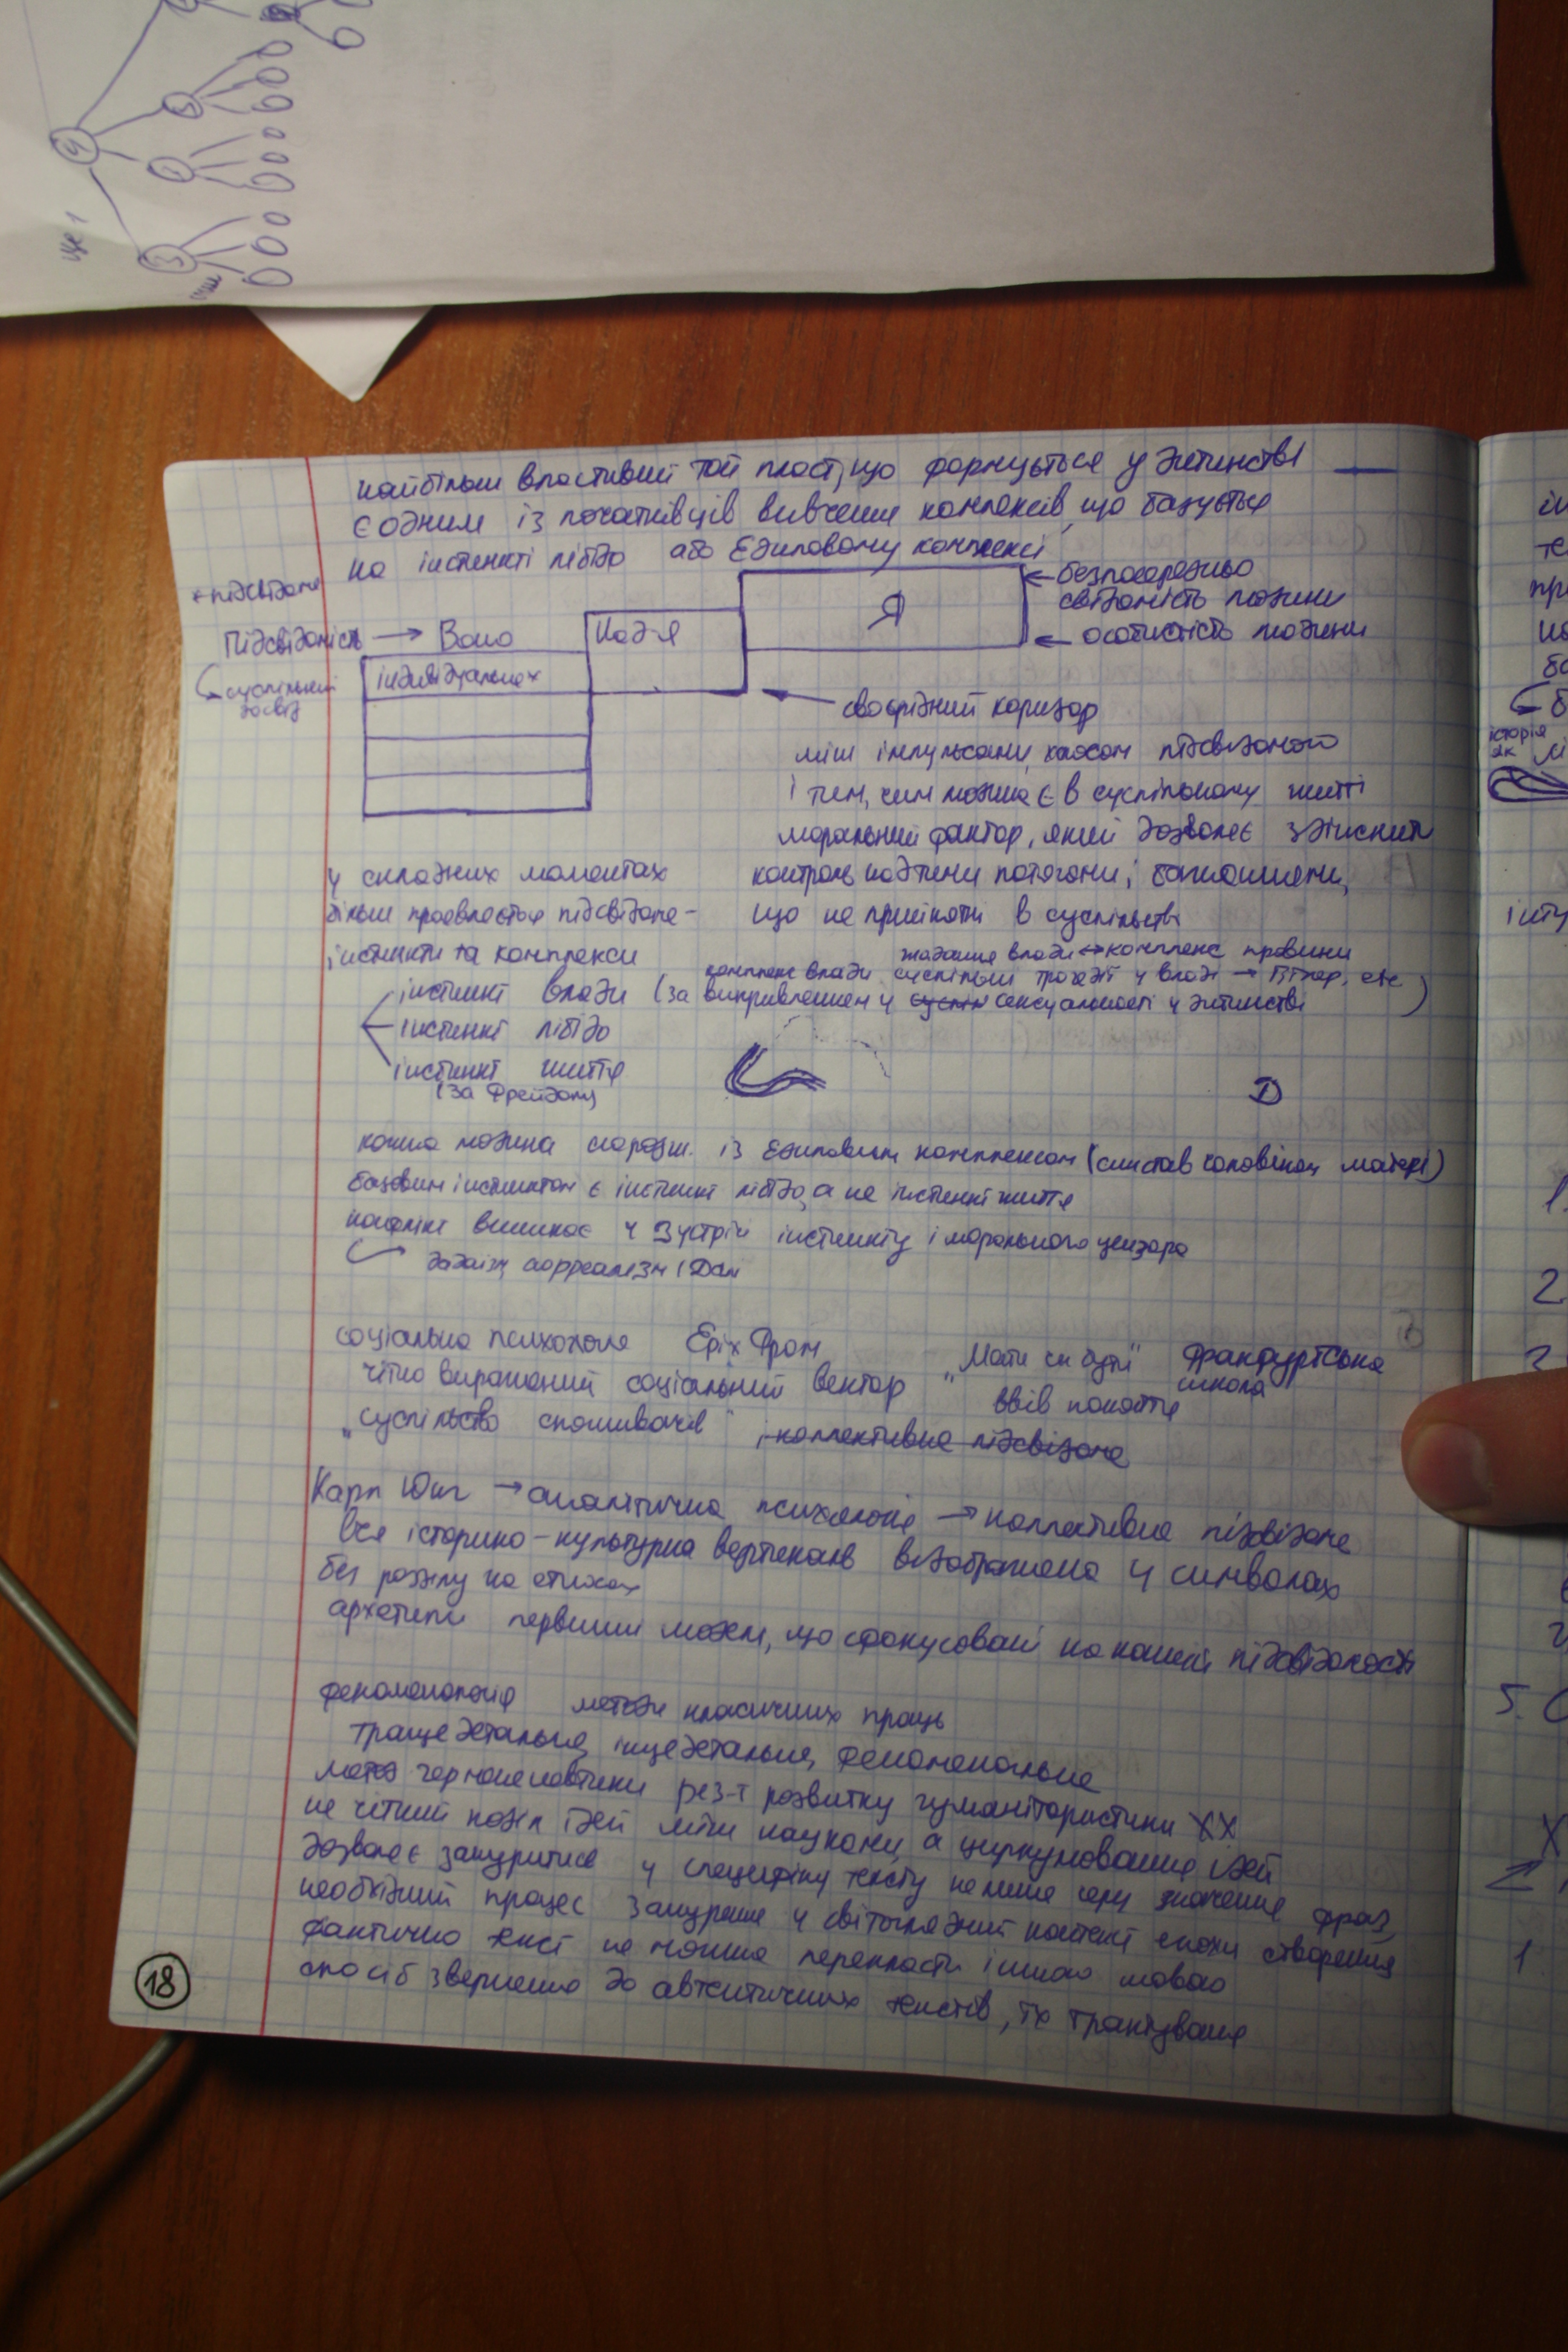 ще 1
4
3
найбільш властивий той пласт, що формується у дитинстві
є одним із початківців вивчення комплексів, що базується
на інстинкті лібідо або Едиповому комплексі
+ підсвідоме
Підсвідомість → Воно
Над-Я
Я
безпосередньо
свідомість людини
особистість людини
суспільний
досвід
індивідуальних
своєрідний коридор
між імпульсами, хаосом підсвідомого
і тим, чим людина є в суспільному житті
моральний фактор, який дозволяє здійснити
контроль над тими потягами і бажаннями,
що не прийняті в суспільстві
у складних моментах
більше проявляється підсвідоме -
інстинкти та комплекси
жадання влади ↔ комплекс провини
комплекс влади суспільні трагедії у владі → Гітлер, etc
інстинкт влади (за викривленням у сексуальності у дитинстві)
інстинкт лібідо
інстинкт життя
(за Фрейдом)
кожна людина народж. із Едиповим комплексом (син став чоловіком матері)
базовим інстинктом є інстинкт лібідо, а не інстинкт життя
конфлікт виникає у зустрічі інстинкту і морального цензора
дадаїзм, сюрреалізм (Далі
соціальна психологія Еріх Фром „Мати чи бути" Франкфуртська
школа
чітко виражений соціальний вектор ввів поняття
„суспільство споживачів" і колективне підсвідоме
Карл Юнг → аналітична психологія → колективне підсвідоме
вся історико-культурна вертикаль відображена у символах
без розділу на епохах
архетипи первинні моделі, що сфокусовані на нашій підсвідомості
феноменологія методи класичних праць
трансцедентальне, інцедентальне, феноменальне
метод герменевтики рез-т розвитку гуманітаристики XX
не чіткий поділ ідей між науками, а циркулювання ідей
дозволяє зануритися у специфіку тексту не лише через значення фраз,
необхідний процес занурення у світоглядний контекст епохи створення
фактично текст не можна перекласти іншою мовою
спосіб звернення до автентичних текстів, їх трактування
18
історія
як
1.
2.
3
5.
1